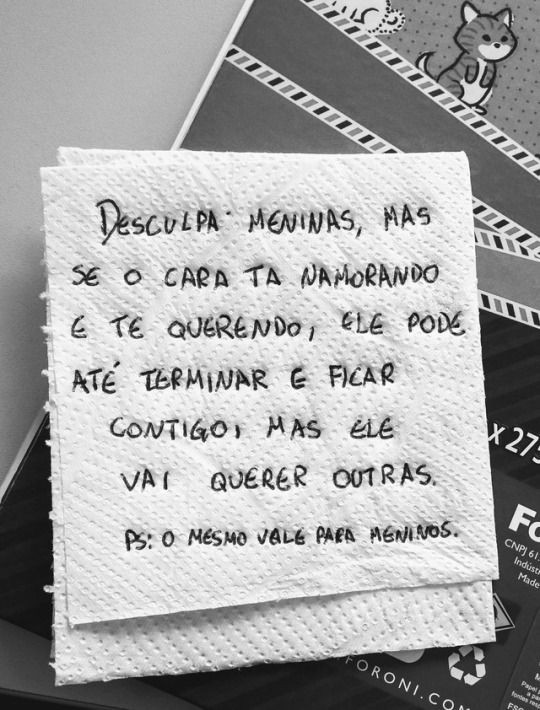 DESCULPA MENINAS, MAS
SE O CARA TA NAMORANDO
E TE QUERENDO, ELE PODE
ATÉ TERMINAR E FICAR
CONTIGO, MAS ELE
VAI QUERER OUTRAS.
PS: O MESMO VALE PARA MENINOS.
x 275
Fo
CNPJ 61
Indúst
Made
FORONI.COM
Papel
a pa
fontes res
FSC